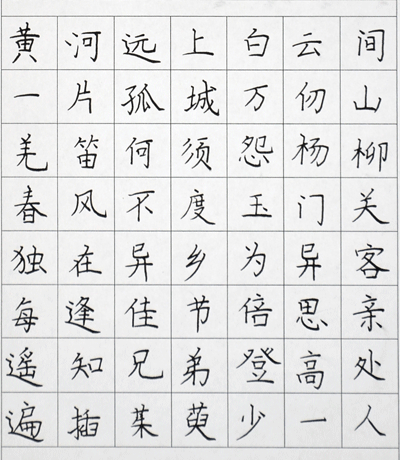 黄河远上白云间
一片孤城万仞山
羌笛何须怨杨柳
春风不度玉门关
独在异乡为异客
每逢佳节倍思亲
遥知兄弟登高处
遍插茱萸少一人